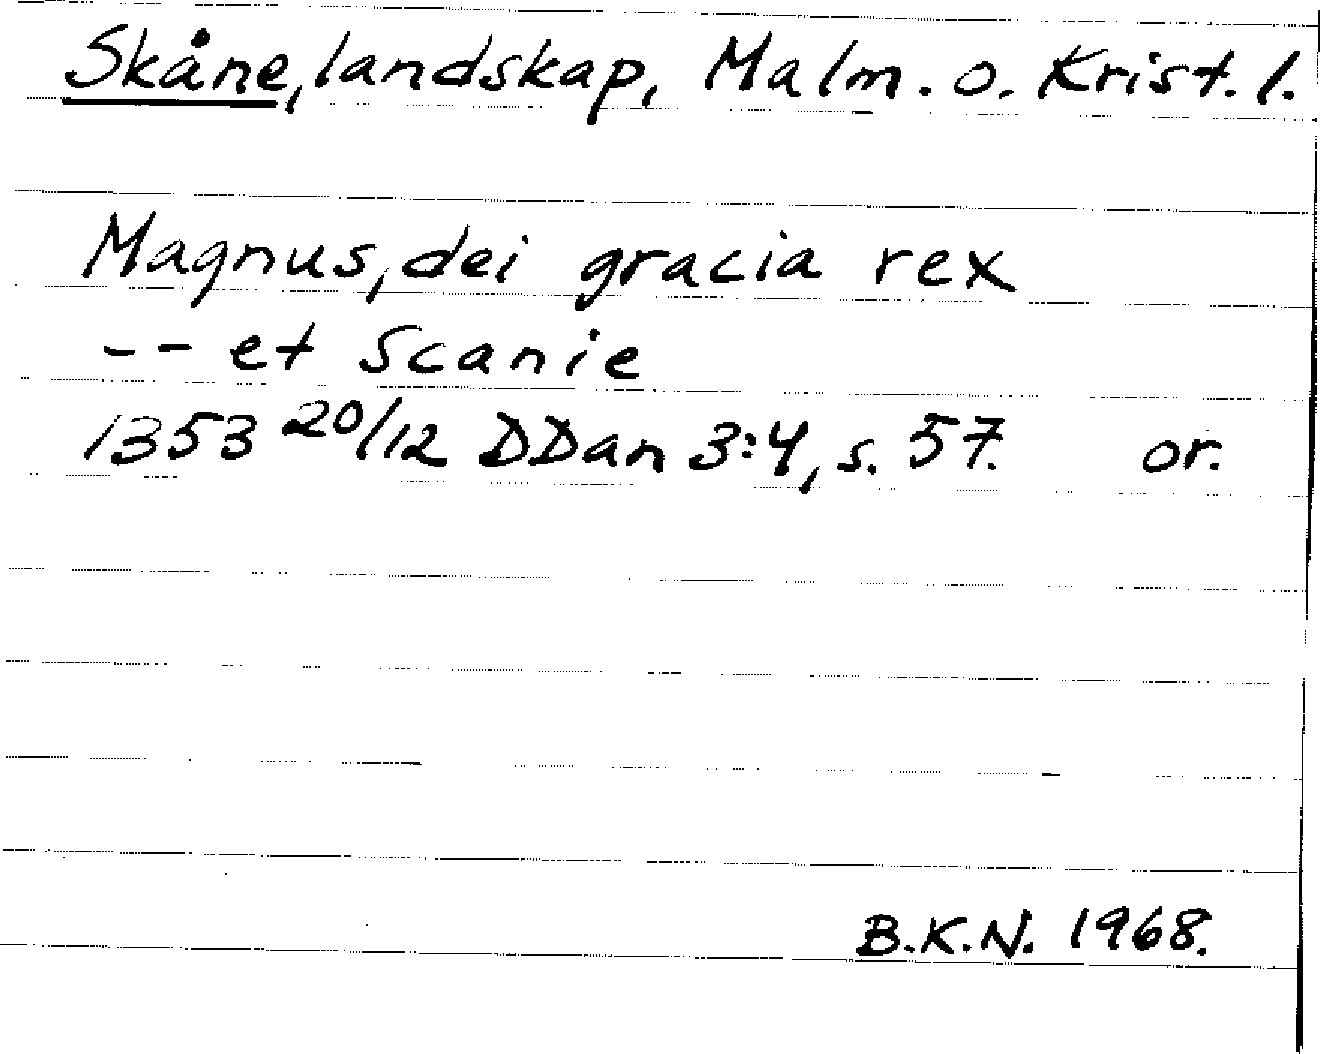 Skåne, landskap, Malm. o. Krist. l.
Magnus, dei gracia rex
-- et Scanie
1353 20/12 DDan 3:4, s. 57. or.
B.K.N. 1968.